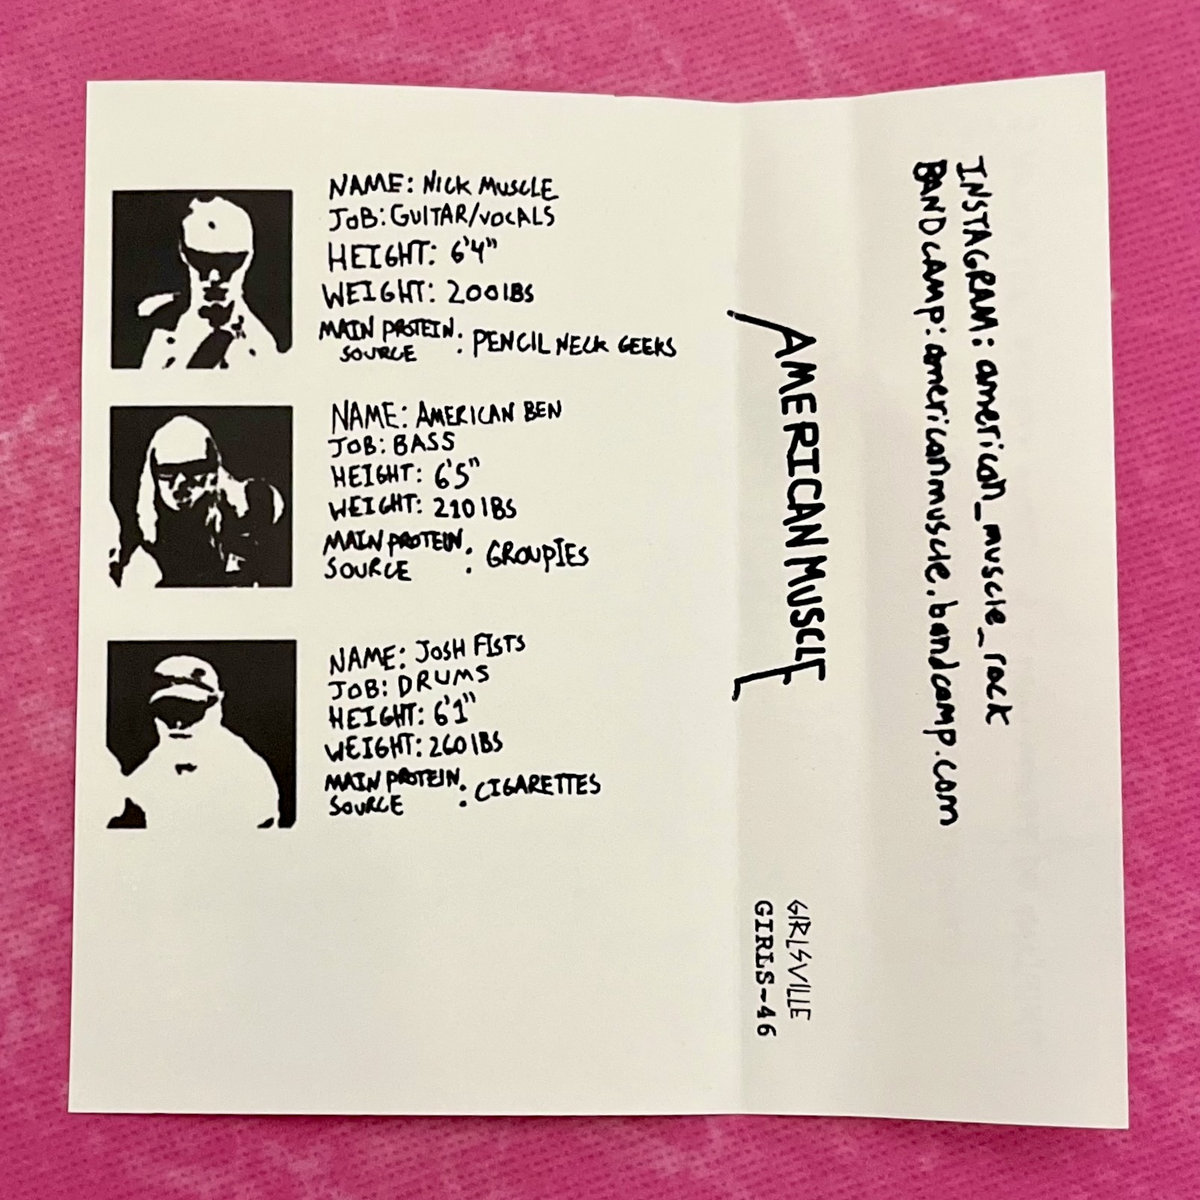 NAME: NICK MUSCLE
JOB: GUITAR/VOCALS
HEIGHT: 6'4"
WEIGHT: 200 lBS
MAIN PROTEIN SOURCE: PENCIL NECK GEEKS
NAME: AMERICAN BEN
JOB: BASS
HEIGHT: 6'5"
WEIGHT: 210 lBS
MAIN PROTEIN SOURCE: GROUPIES
NAME: JOSH FISTS
JOB: DRUMS
HEIGHT: 6'1"
WEIGHT: 260 lBS
MAIN PROTEIN SOURCE: CIGARETTES
AMERICAN MUSCLE
GIRLSVILLE
GIRLS-46
INSTAGRAM: american_muscle_rock
BANDCAMP: americanmuscle.bandcamp.com